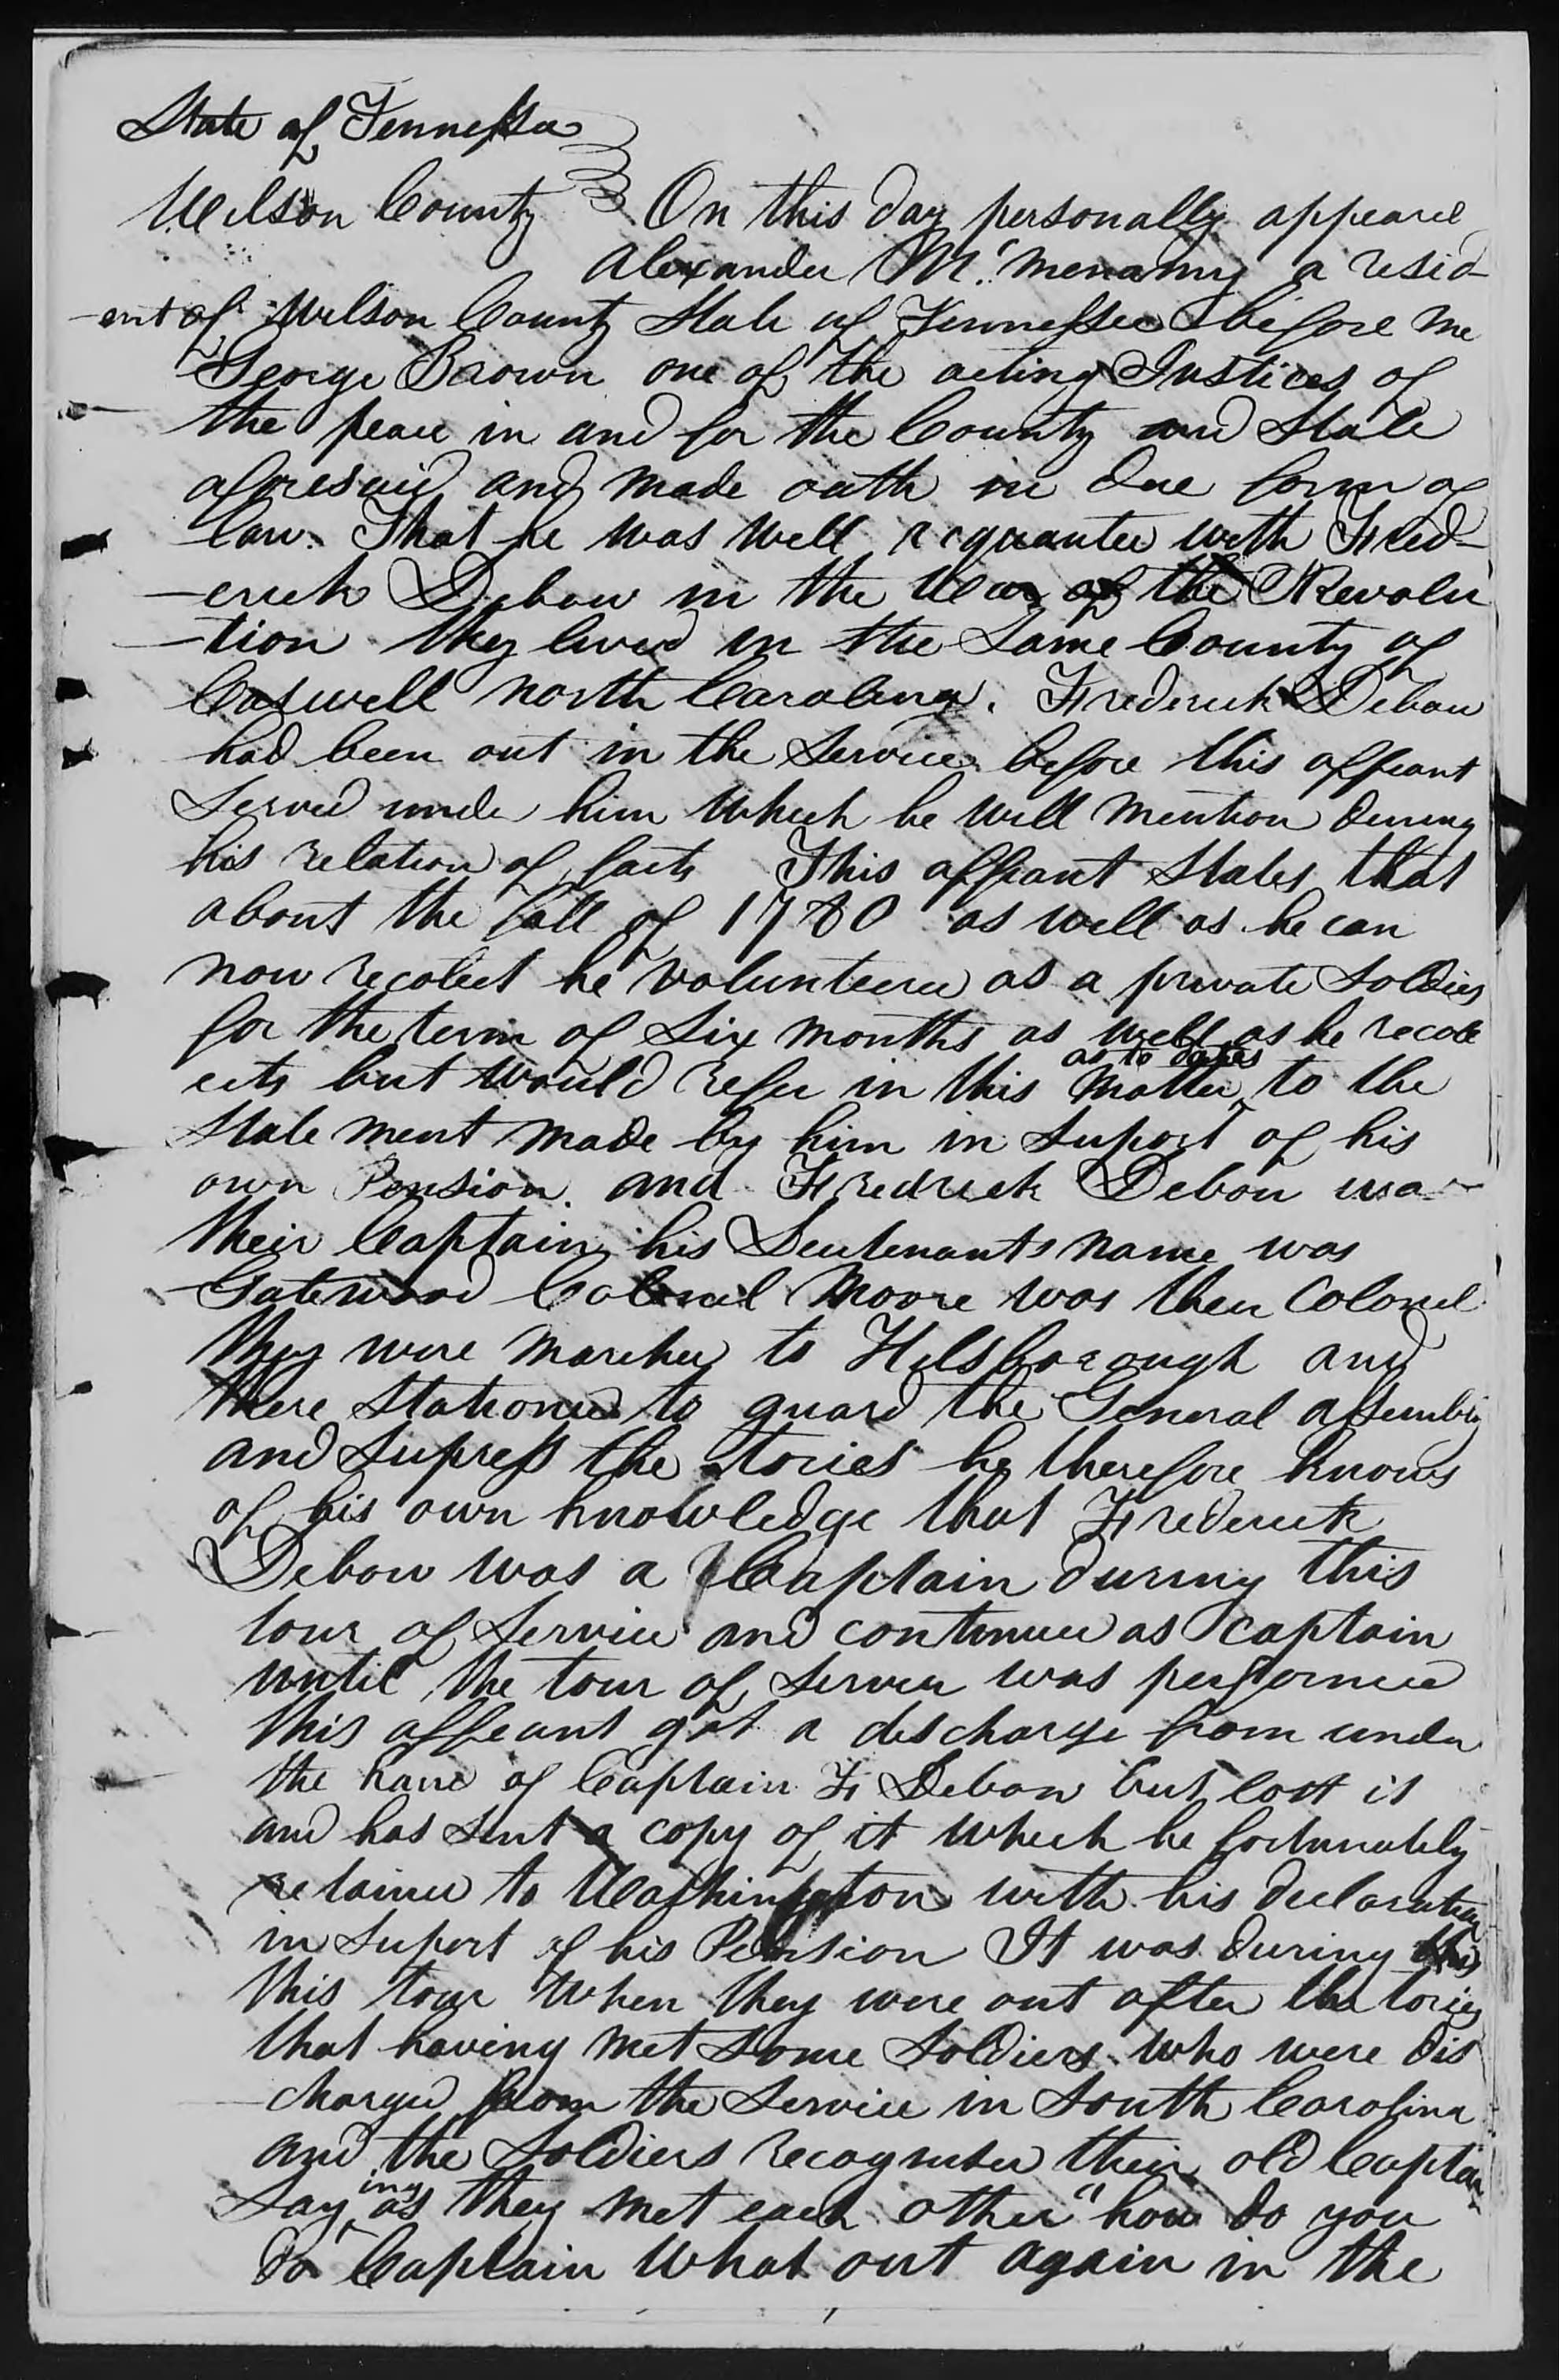 State of Tennessee
Wilson County } On this day personally appeared
Alexander Mc.menamy a resid-
-ent of Wilson County State of Tennessee before me
George Brown one of the acting Justices of
the peace in and for the County and State
aforesaid and made oath in due form of
law. That he was well acquanted with Fred-
-erick Debow in the War of the Revolu
-tion they lived in the Same County of
Caswell north Carolina. Frederick Debow
had been out in the Service before this affiant
Served under him which he will mention during
his relation of facts This affiant States that
about the fall of 1780 as well as he can
now recolect he volunteered as a private Soldier
for the term of Six months as well as he recole
as to dates
ects but would refer in this matter to the
State ment made by him in Suport of his
own Pension. and Fredrick Debow was
their Captain his Leutenants name was
Gatewood Colonel Moore was then Colonel
they were marched to Hilsborough and
there Stationed to guard the General assembly
and Supress the tories he therefore knows
of his own knowledge that Frederick
Debow was a Captain during this
tour of Service and continued as Captain
until the tour of Service was performed
this affiant got a discharge from under
the hand of Captain F Debow but lost it
and has Sent a copy of it which he fortunately
retained to Washington with his declaration
in Suport of his Pension It was during this
this tour when they were out after the tories
that having met Some Soldiers who were dis
-charged from the Service in South Carolina
and the Soldiers recognised their old Captain
ing
Say as they met each other "how do you
do Captain what out again in the